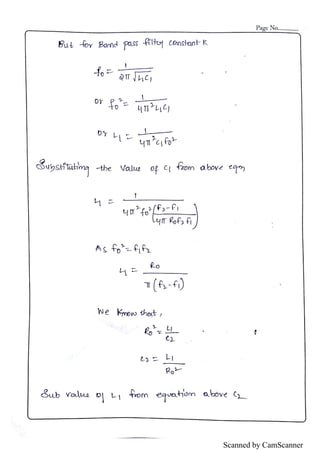 Page No.
But for Band pass filter constant K
fo = 1 / 2π √L1C1
or fo² = 1 / 4π²L1C1
or L1 = 1 / 4π²C1fo²
Substituting the value of C1 from above eqn
L1 = 1 / 4π² fo² (f2-f1 / 4π Rof2f1)
As fo² = f1f2
L1 = Ro / π(f2-f1)
We know that,
Ro² = L1 / C2
C2 = L1 / Ro²
Sub value of L1 from equation above C2
Scanned by CamScanner